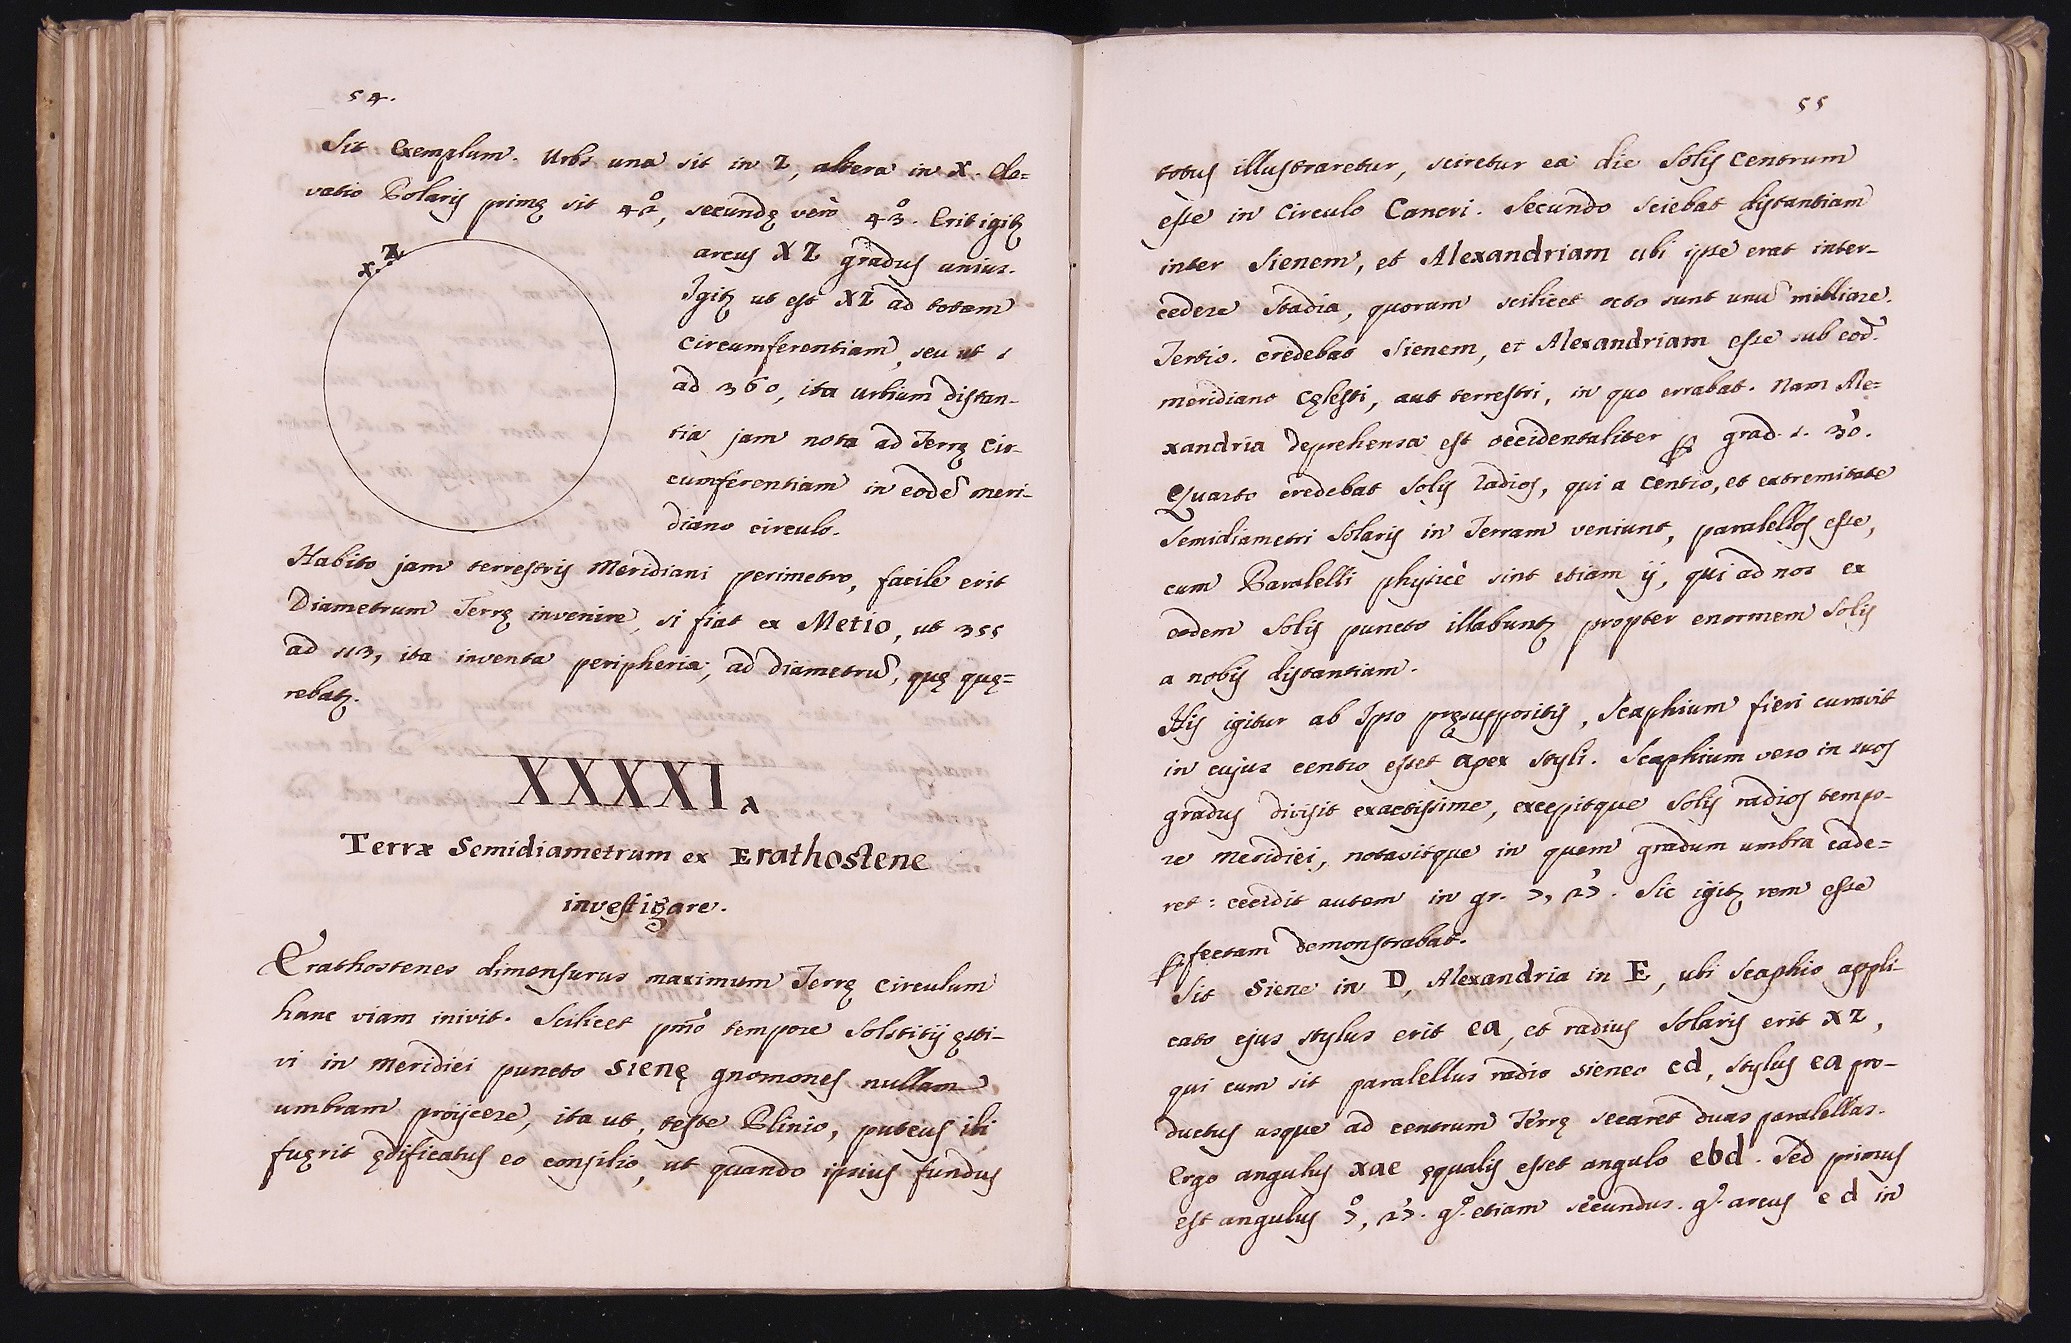 54.
Sit Exemplum. Urbs una sit in Z, altera in X. Ele=
vatio Polaris primę sit 42°, secundę verò 43°. Erit igitꝫ
arcus XZ gradus unius.
Igitꝫ ut est XZ ad totam
circumferentiam, seu ut 1
ad 360, ita urbium distan-
tia jam nota ad Terrę cir-
cumferentiam in eodẽ meri-
diano circulo.
X. Z
Habito jam terrestris Meridiani perimetro, facile erit
Diametrum Terrę invenire, si fiat ex Metio, ut 355
ad 113, ita inventa peripheria, ad diametrũ, quę quę=
rebatꝫ.
XXXXI.
Terræ Semidiametrum ex Erathostene
investigare.
Erathostenes dimensurus maximum Terrę circulum
hanc viam inivit. Scilicet pmò tempore Solstitij ęsti-
vi in meridiei puncto Sienę gnomones nullam
umbram proijcere, ita ut, teste Plinio, puteus ibi
fuęrit ędificatus eo consilio, ut quando ipsius fundus
55
totus illustraretur, sciretur ea die Solis centrum
esse in circulo Cancri. Secundo sciebat distantiam
inter Sienem, et Alexandriam ubi ipse erat inter-
cedere stadia, quorum scilicet octo sunt unũ milliare.
Tertio. credebat Sienem, et Alexandriam esse sub eod̃.
meridiano cęlesti, aut terrestri, in quo errabat. Nam Ale=
xandria deprehensa est occidentaliter ꝑ grad. 1. 30'.
Quarto credebat Solis radios, qui a centro, et extremitate
Semidiametri Solaris in Terram veniunt, paralellos esse,
cum Paralelli physicè sint etiam ij, qui ad nos ex
eodem Solis puncto illabuntꝫ propter enormem Solis
a nobis distantiam.
His igitur ab Ipso pręsuppositis, Scaphium fieri curavit
in cujus centro esset apex styli. Scaphium vero in suos
gradus divisit exactissime, excepitque Solis radios tempo-
re meridiei, notavitque in quem gradum umbra cade=
ret: cecidit autem in gr. 7, 12'. Sic igitꝫ rem esse
ꝑfectam demonstrabat.
Sit Siene in D, Alexandria in E, ubi Scaphio appli-
cato ejus stylus erit ea, et radius Solaris erit xz,
qui cum sit paralellus radio sieneo cd, stylus ea pro-
ductus usque ad centrum Terrę secaret duas paralellas.
Ergo angulus xae ęqualis esset angulo ebd. Sed primus
est angulus 7°, 12'. gͦ. etiam secundus. gͦ. arcus ed in